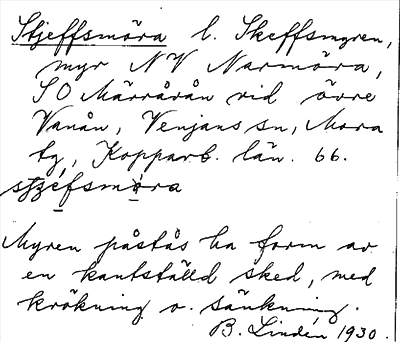 Stjeffsmöra l. Skeffsmyren,
myr NV Narmöra,
SO Märråran vid övre
Vanån, Venjans sn, Mora
tg, Kopparb. län. 66.
stjefsmora
Myren påstås ha form av
en kantställd sked, med
krökning o. sänkning.
B. Lindén 1930.